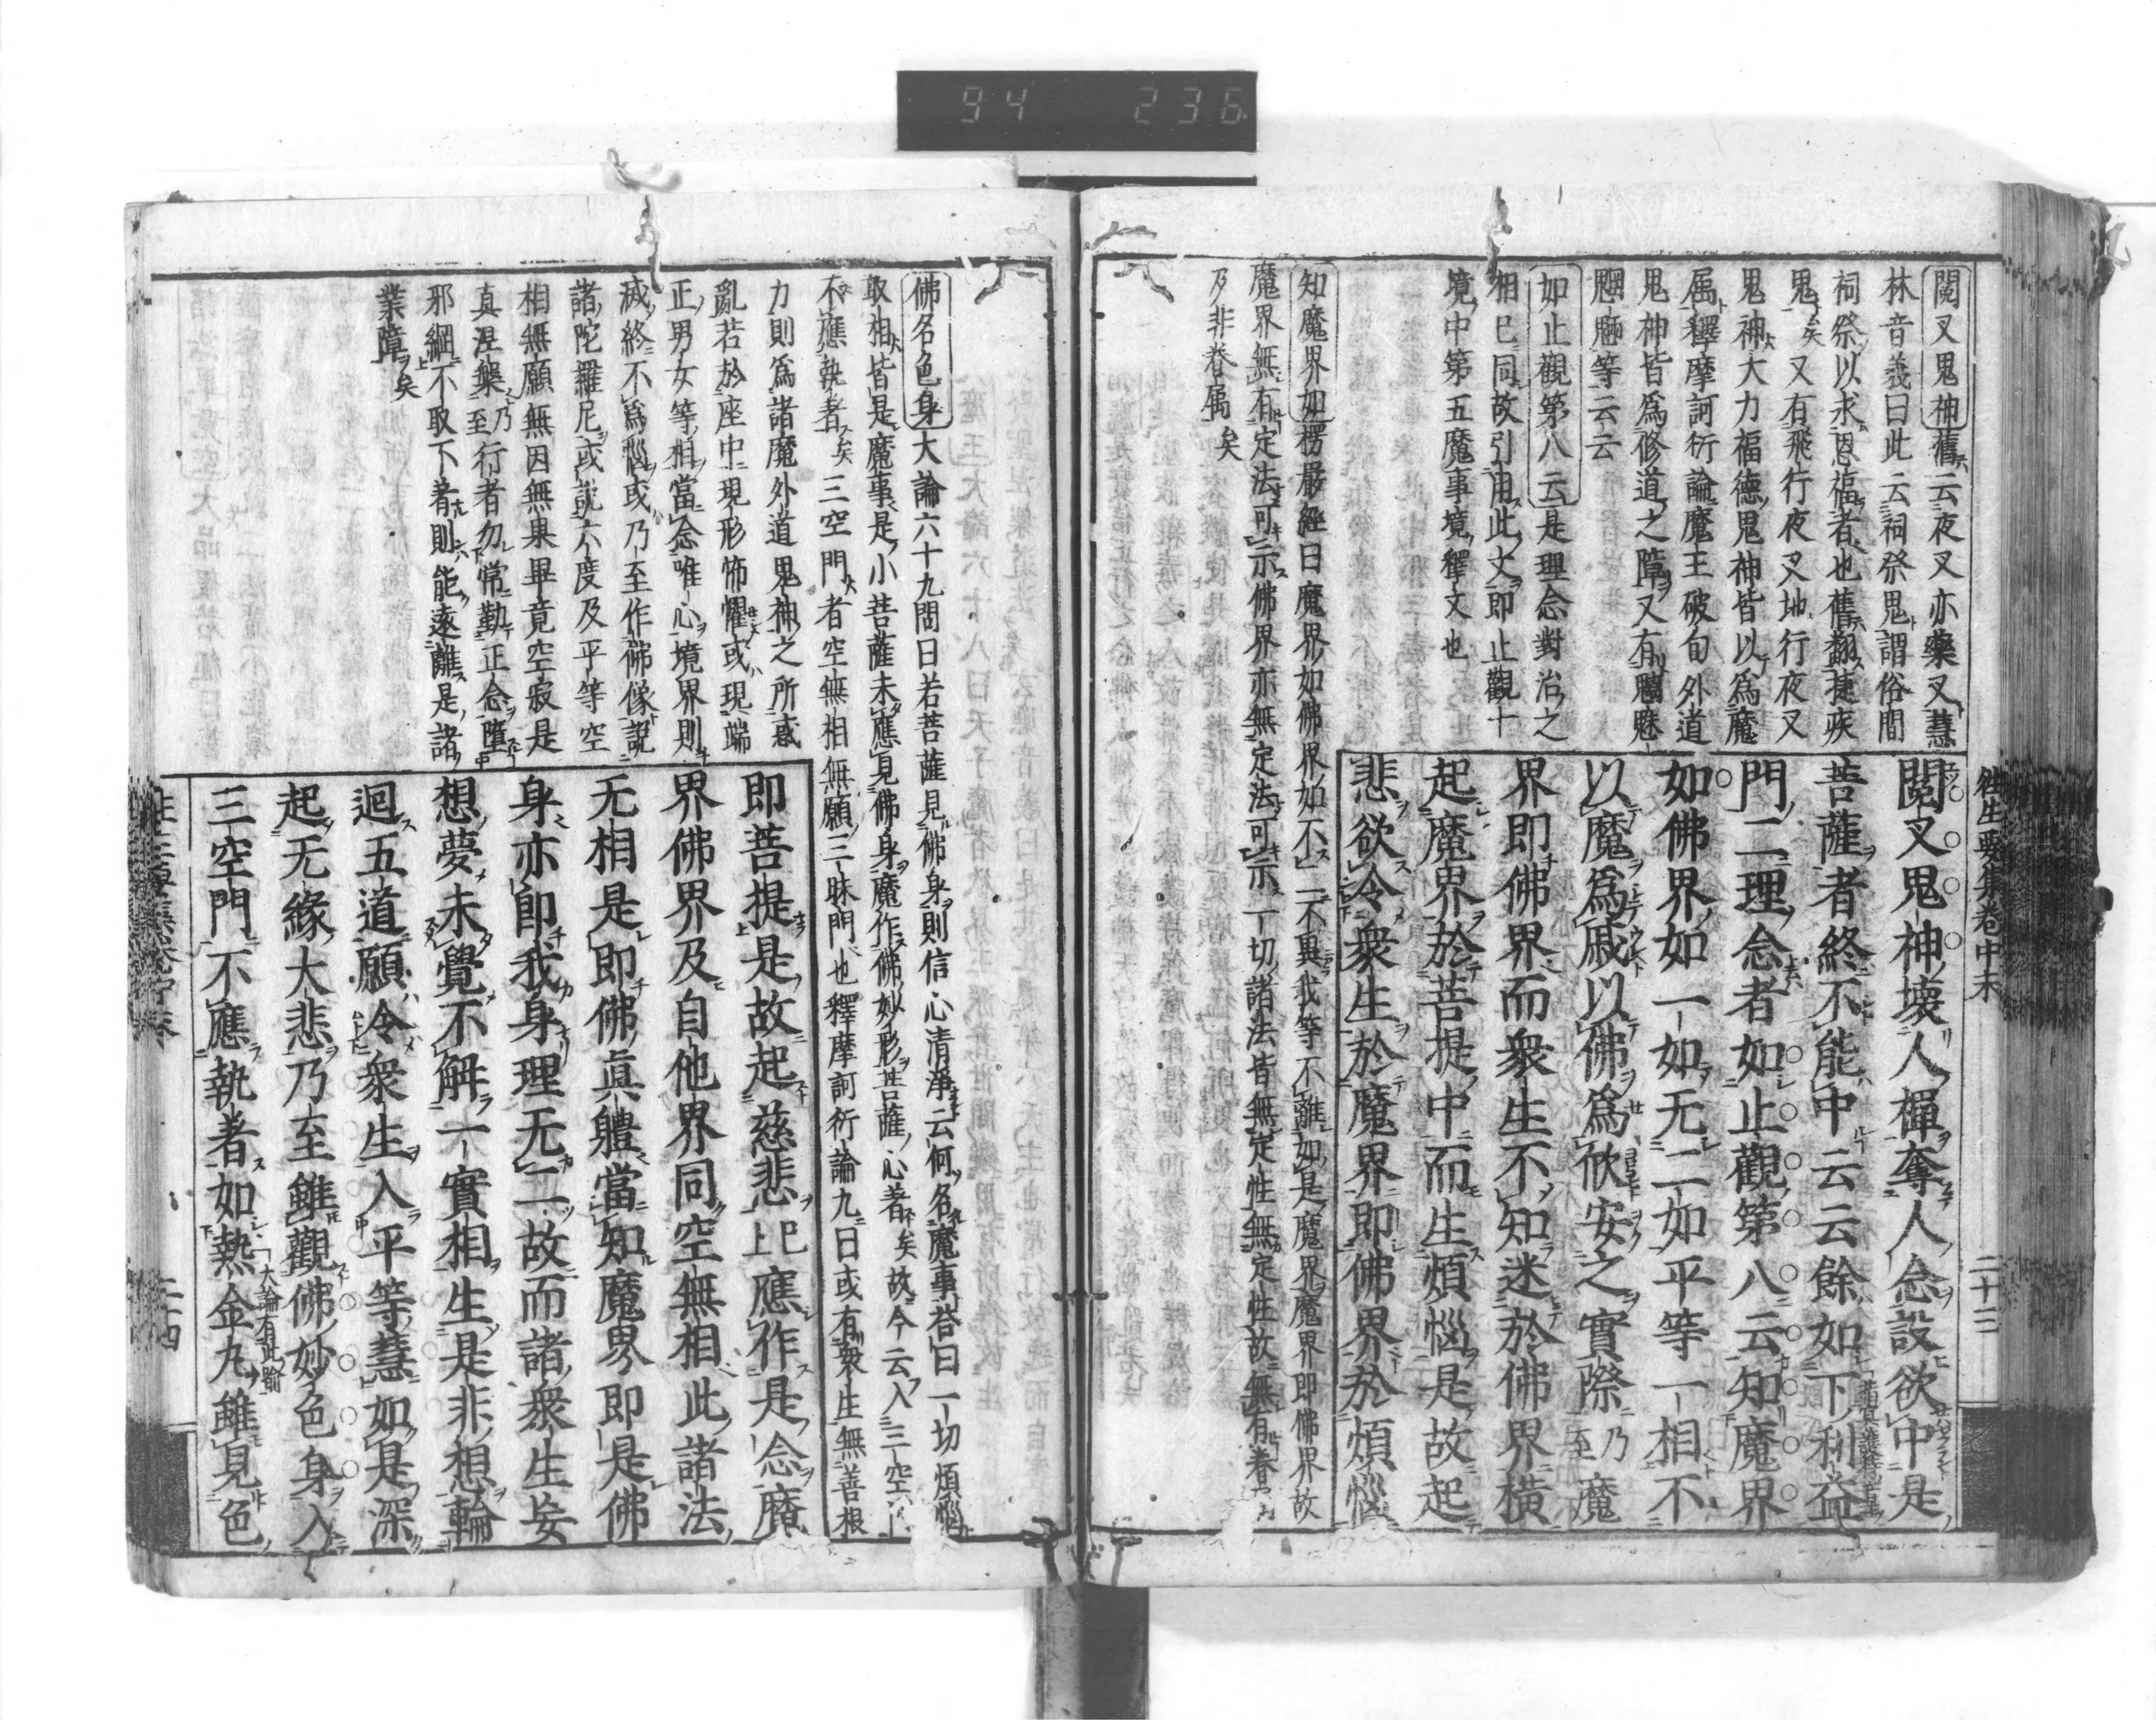 94 236
往生要集卷中末
二十三
閲叉鬼神舊云夜叉亦藥叉慧
林音義曰此云祠祭鬼謂俗間
祠祭以求恩福者也舊翻捷疾
鬼矣又有飛行夜叉地行夜叉
鬼神大力福德鬼神皆以爲魔
属釋摩訶衍論魔王破旬外道
鬼神皆爲修道之障又有魑魅
魍魎等云云
如止觀第八云是理念對治之
相已同故引用此文即止觀十
境中第五魔事境釋文也
知魔界如楞嚴經曰魔界如佛界如不二不異我等不離如是魔界魔界即佛界故
魔界無有定法可示佛界亦無定法可示一切諸法皆無定性無定性故無有眷屬
及非眷属矣
閲叉鬼神壞人禪奪人念設欲中是
菩薩者終不能中云云餘如下利益
門二理念者如止觀第八云知魔界
如佛界如一如无二如平等一相不
以魔爲戚以佛爲欣安之實際乃至魔
界即佛界而衆生不知迷於佛界橫
起魔界於菩提中而生煩惱是故起
悲欲令衆生於魔界即佛界於煩惱
佛名色身大論六十九問曰若菩薩見佛身則信心清淨云何名魔事荅曰一切煩惱
取相皆是魔事是小菩薩未應見佛身魔作佛妙形菩薩心著矣故今云入三空門
不應執者矣三空門者空無相無願三昧門也釋摩訶衍論九曰或有衆生無善根
力則爲諸魔外道鬼神之所惑
亂若於座中現形怖懼或現端
正男女等相當念唯心境界則
滅終不爲惱或乃至作佛像說
諸陀羅尼或說六度及平等空
相無願無因無果畢竟空寂是
真涅槃乃至行者勿常勤正念墮
邪網不取下著則能遠離是諸
業障矣
即菩提是故起慈悲已上應作是念魔
界佛界及自他界同空無相此諸法
无相是即佛真體當知魔界即是佛
身亦即我身理无二故而諸衆生妄
想夢未覺不解一實相生是非想輪
迴五道願令衆生入平等慧如是深
起无緣大悲乃至雖觀佛妙色身入
三空門不應執著如熱金丸大論有此喻雖見色
二十四